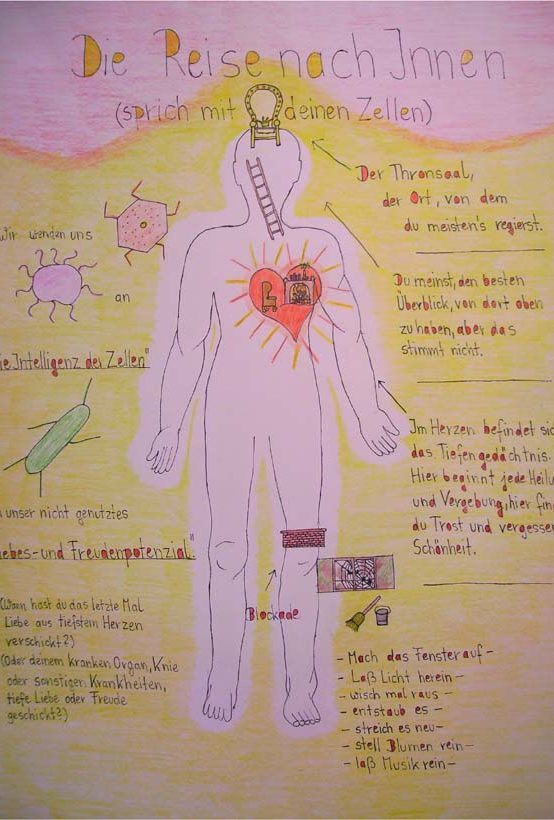 Die Reise nach Innen
(sprich mit deinen Zellen)
Der Thronsaal,
der Ort, von dem
du meisten's regierst.
Du meinst, den besten
Überblick, von dort oben
zu haben, aber das
stimmt nicht.
Im Herzen befindet sic
das Tiefengedächtnis.
Hier beginnt jede Heilu
und Vergebung, hier fin
du Trost und vergessen
Schönheit.
Wir wenden uns
an
ie Intelligenz der Zellen"
unser nicht genutztes
iebes- und Freudenpotenzial."
(Wann hast du das letzte Mal
Liebe aus tiefstem Herzen
verschickt?)
(Oder deinem kranken Organ, Knie
oder sonstigen Krankheiten,
tiefe Liebe oder Freude
geschickt?)
Blockade
- Mach das Fenster auf -
- Laß Licht herein -
- wisch mal raus -
- entstaub es -
- streich es neu -
- stell Blumen rein -
- laß Musik rein -